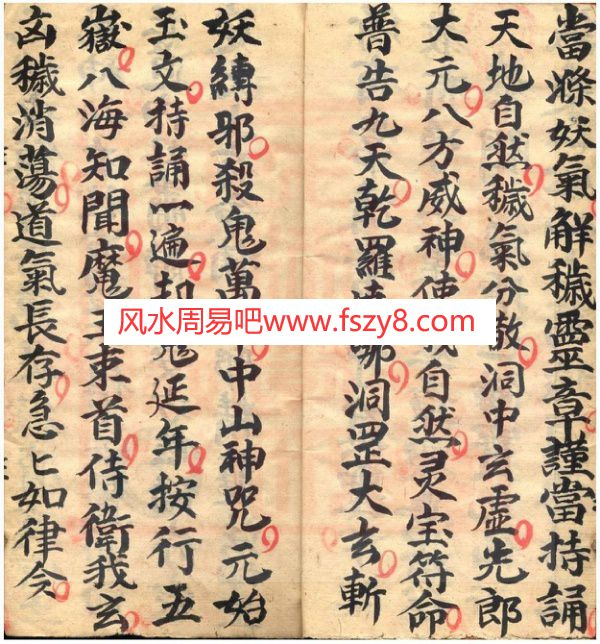 當滌妖氣解穢靈章謹當持誦
天地自然穢氣分散洞中玄虛光郎
大元八方威神使我自然灵宝符命
普告九天乾羅那洞罡大玄斬
妖縛邪殺鬼萬中山神咒元始
玉文持誦一遍却鬼延年按行五
嶽八海知聞魔王束首侍衛我玄
凶穢消蕩道氣長存急匕如律令
风水周易吧www.fszy8.com